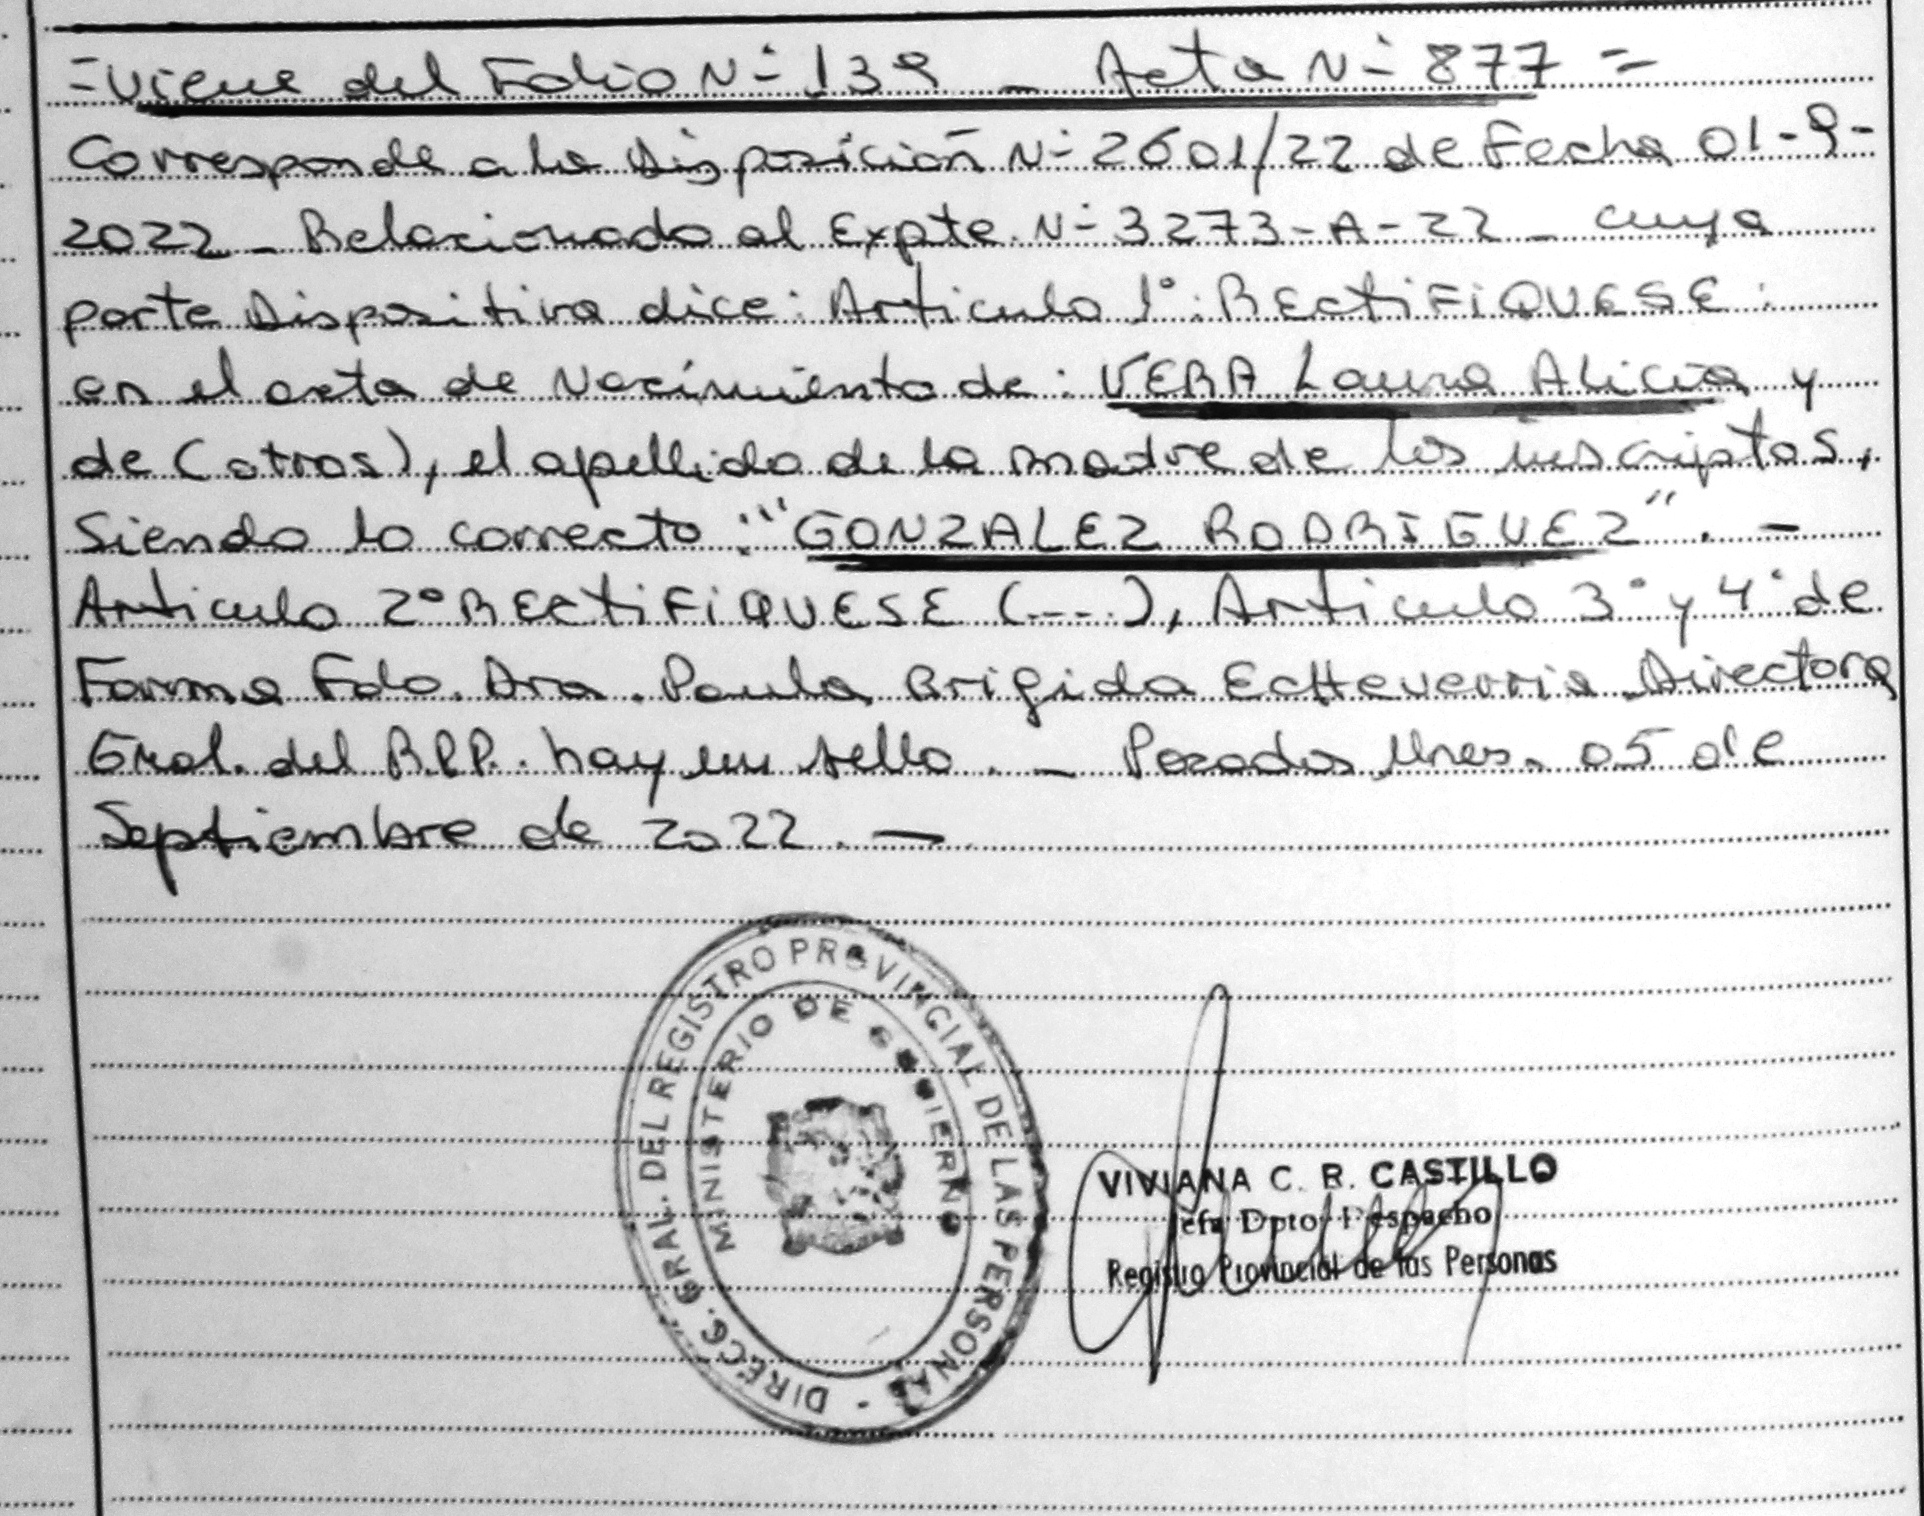 =Viene del Folio N- 139 - Acta N- 877 =
Corresponde a la Disposición N- 2601/22 de Fecha 01-9-
2022 - Relacionado al Expte. N- 3273-A-22 - cuya
parte Dispositiva dice: Articulo 1°: RECTIFIQUESE:
en el acta de Nacimiento de: VERA Laura Alicia y
de (otros), el apellido de la madre de los inscriptos,
Siendo lo correcto: "GONZALEZ RODRIGUEZ". -
Articulo 2° RECTIFIQUESE (----), Articulo 3° y 4° de
Forma Fdo. Dra. Paula Brigida Echeverria Directora
Gral. del R.P.P. hay un sello. - Posadas Mnes. 05 de
Septiembre de 2022. -
DIRECC. GRAL. DEL REGISTRO PROVINCIAL DE LAS PERSONAS -
MINISTERIO DE GOBIERNO
VIVIANA C. R. CASTILLO
Jefa Dpto. Despacho
Registro Provincial de las Personas